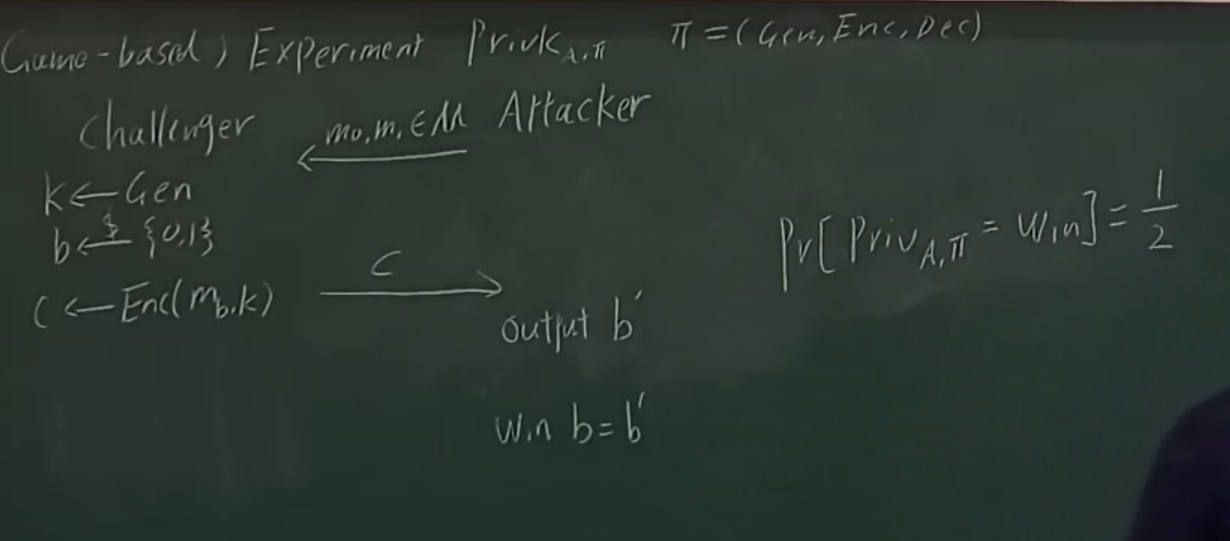 Game-based) Experiment PrivK_{A,π} π=(Gen, Enc, Dec)
Challenger m₀,m₁∈M Attacker
k←Gen
b←$ {0,1}
c←Enc(m_b,k) C
output b'
Win b=b'
Pr[Priv_{A,π}=Win]=1/2